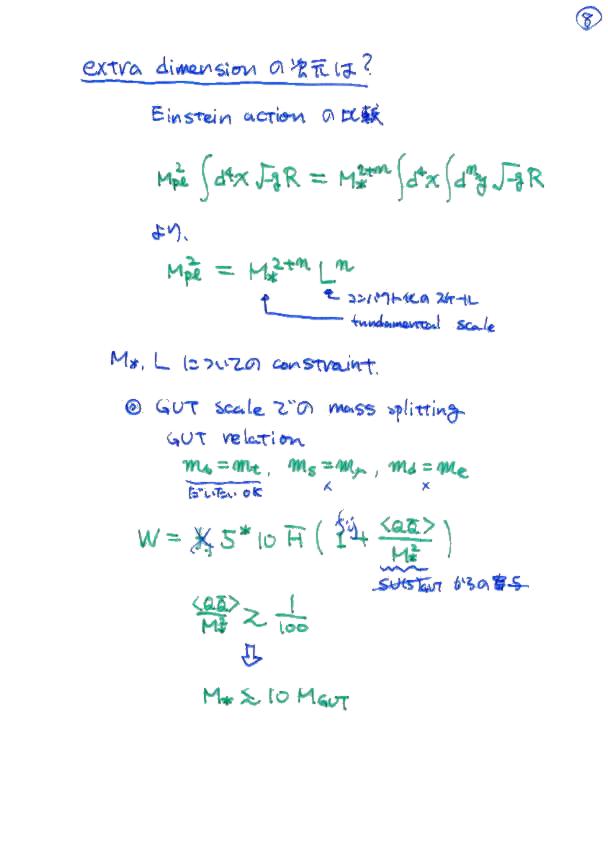 8
extra dimension の次元は?
Einstein action の比較
M_{pl}^2 ∫d^4x √-g R = M_*^{2+n} ∫d^4x ∫d^n y √-g R
より、
M_{pl}^2 = M_*^{2+n} L^n
コンパクト化のスケール
fundamental scale
M_*, L についての constraint.
◎ GUT scale での mass splitting
GUT relation
m_b = m_τ, m_s = m_μ, m_d = m_e
だいたい OK × ×
W = 5^* 10 H̄ ( + <QQ̄>/M_*^2 )
SU(5)_{GUT} からの寄与
<QQ̄>/M_*^2 ≳ 1/100
⇩
M_* ≲ 10 M_{GUT}